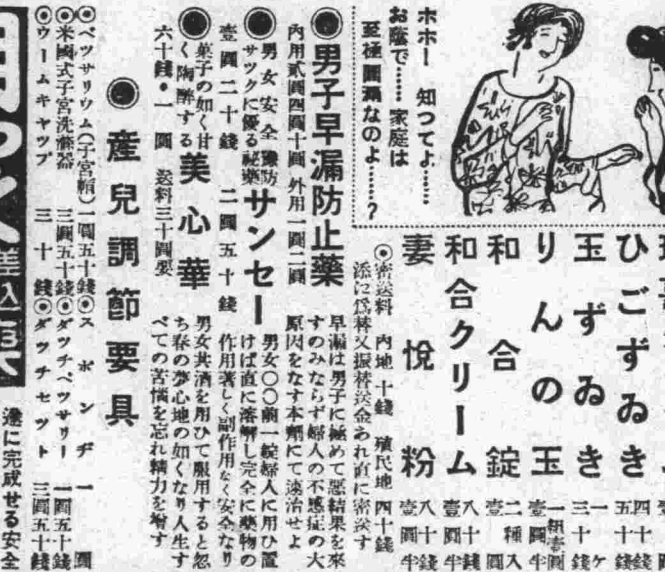 ホホー 知つてよ………
お蔭で…… 家庭は
至極圓満なのよ……？
ひごずゐき
五十錢
四十錢
玉ずゐき
三十錢
一ヶ
りんの玉
壹圓半
一組壹圓
和合錠
二種入
壹圓
和合クリーム
八十錢
壹圓半
妻悅粉
八十錢
壹圓半
◎密送料 內地十錢 殖民地四十錢
添に爲替又振替送金あれ直に密送す
◉男子早漏防止藥
內用貳圓四圓十圓 外用一圓二圓
早漏は男子に極めて惡結果を來
すのみならず婦人の不感症の大
原因をなす本劑にて速治せよ
◉男女安全豫防
サツクに優る秘藥
サンセー
壹圓二十錢 二圓五十錢
男女〇〇前一錠婦人に用ひ置
けば直に溶解し完全に藥物の
作用著しく副作用なく安全なり
◉菓子の如く甘
く陶醉する
美心華
六十錢・一圓 送料三十圓要
男女共酒を用ひて服用すると忽
ち春の夢心地の如くなり人生す
べての苦惱を忘れ精力を增す
◉產兒調節要具
◎ペツサリウム(子宮帽)一圓五十錢
◎スポンヂ 一圓
◎米國式子宮洗滌器 三圓五十錢
◎ダツチペツサリー 一圓五十錢
◎ウームキヤツプ 三十錢
◎ダツチセツト 三圓五十錢
遂に完成せる安全